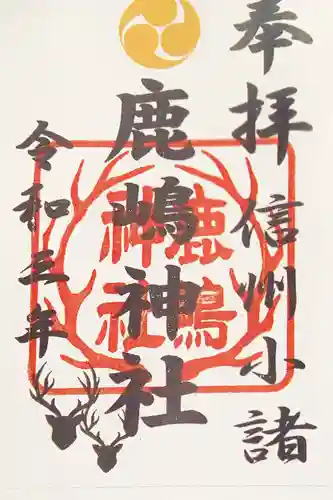 奉拝 信州小諸
鹿嶋神社
令和三年
鹿嶋
神社